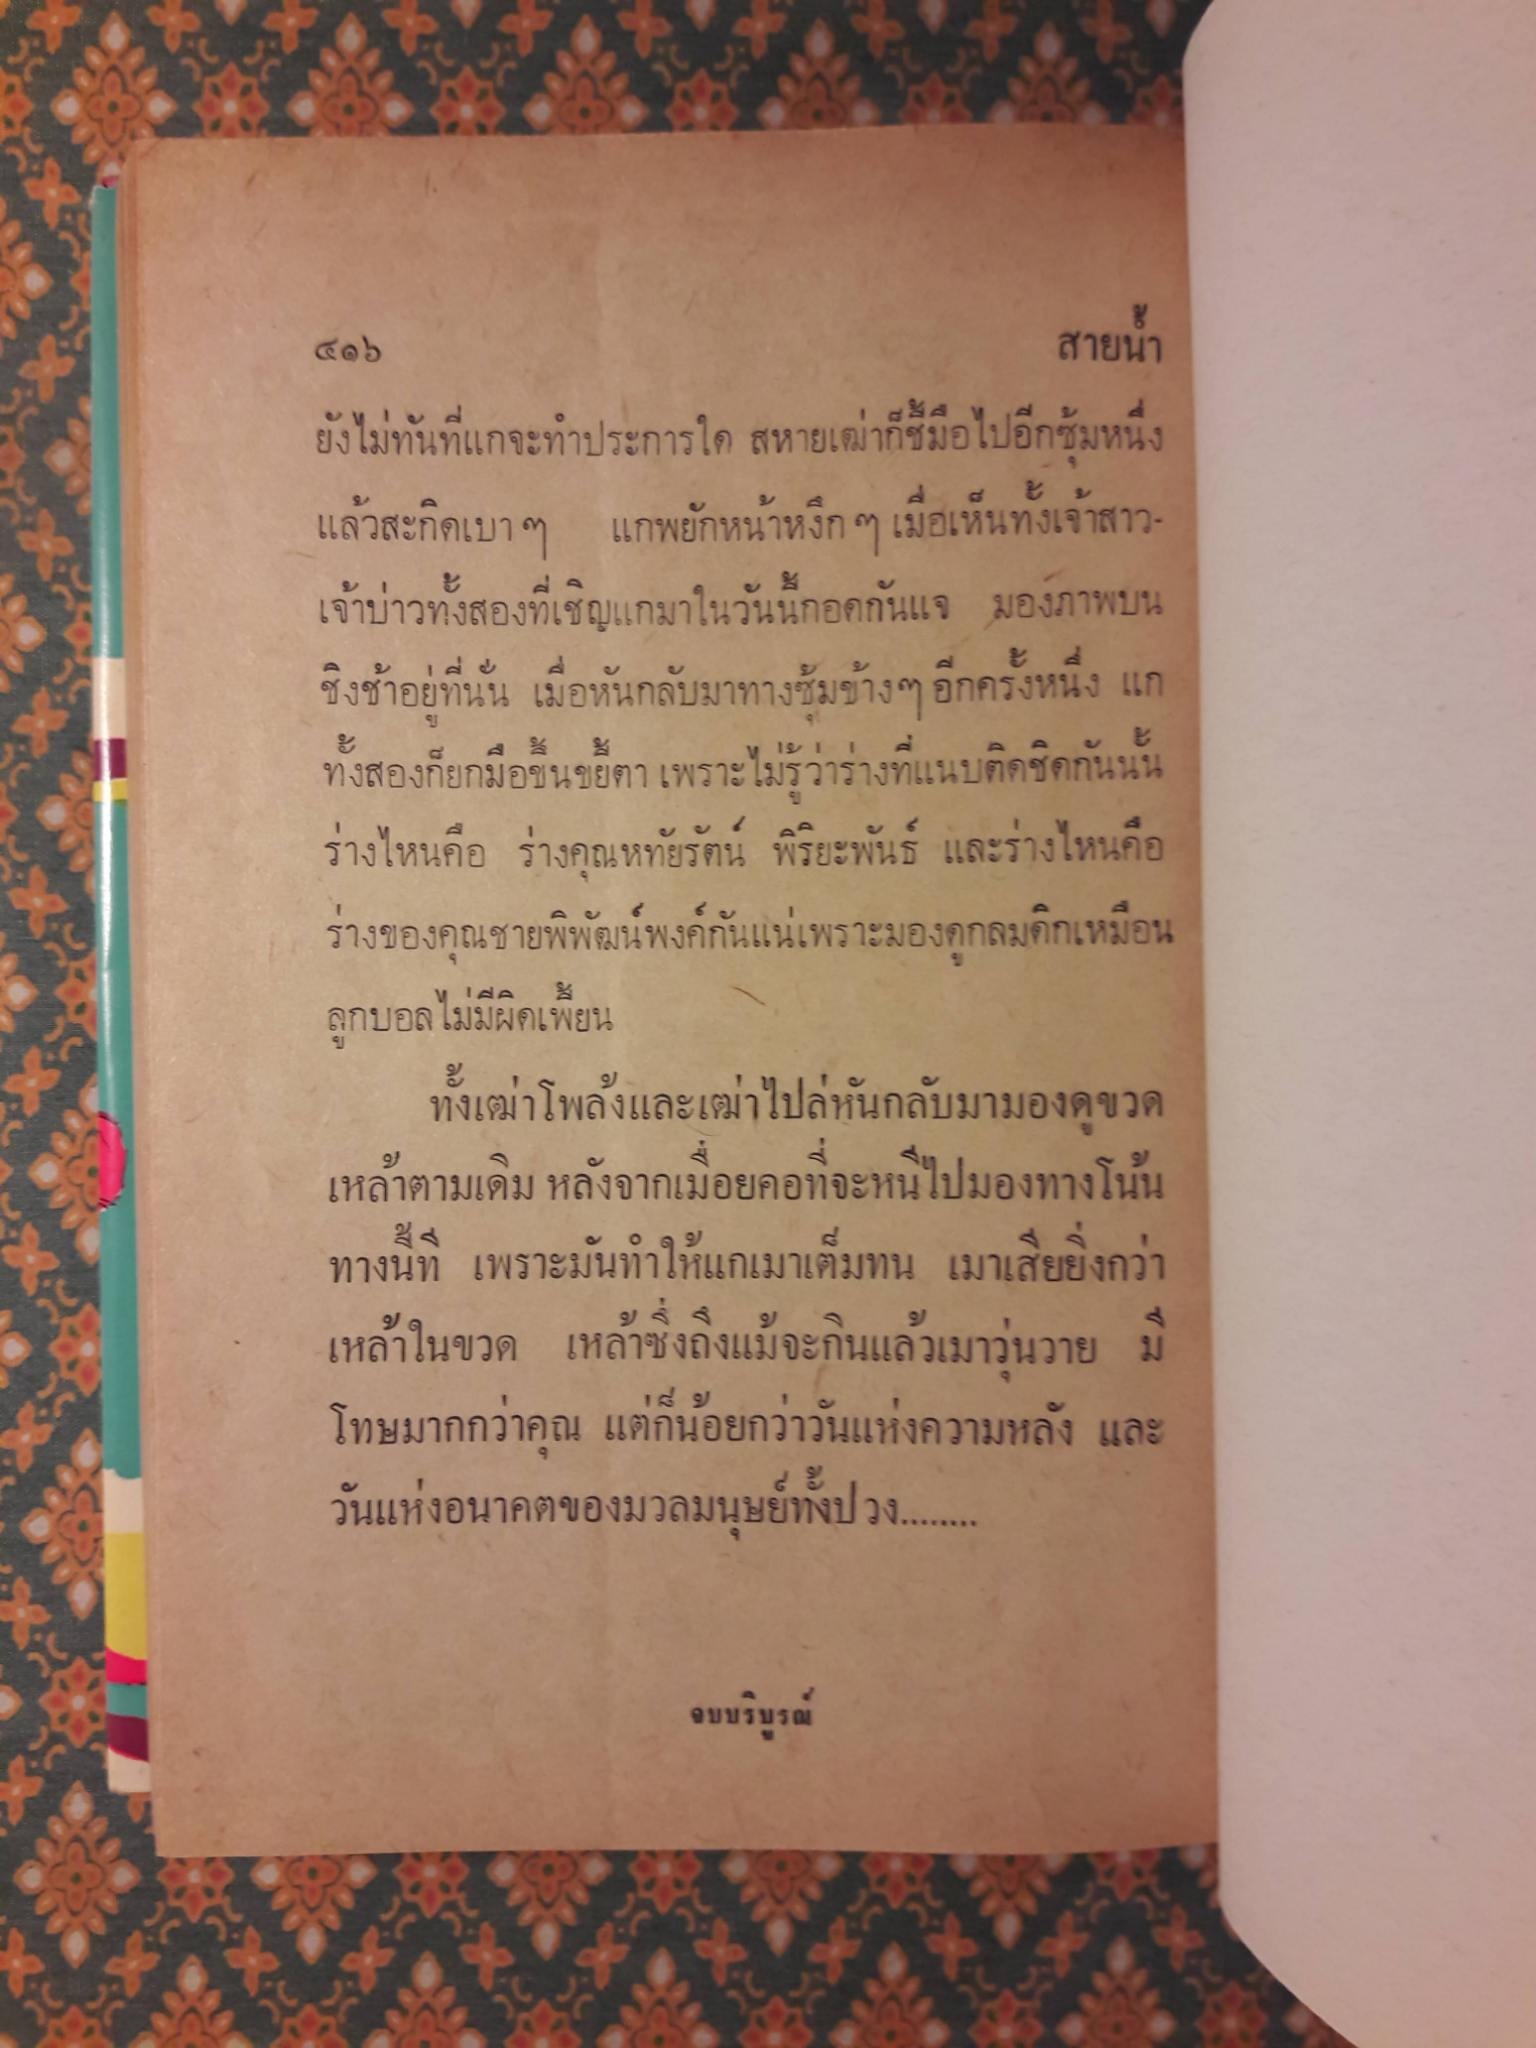 ๔๑๖ สายน้ำ
ยังไม่ทันที่แกจะทำประการใด สหายเฒ่าก็ชี้มือไปอีกซุ้มหนึ่ง
แล้วสะกิดเบา ๆ แกพยักหน้าหงึก ๆ เมื่อเห็นทั้งเจ้าสาว-
เจ้าบ่าวทั้งสองที่เชิญแกมาในวันนี้กอดกันแจ มองภาพบน
ชิงช้าอยู่ที่นั่น เมื่อหันกลับมาทางซุ้มข้าง ๆ อีกครั้งหนึ่ง แก
ทั้งสองก็ยกมือขึ้นขยี้ตา เพราะไม่รู้ว่าร่างที่แนบติดชิดกันนั้น
ร่างไหนคือ ร่างคุณหทัยรัตน์ พิริยะพันธ์ และร่างไหนคือ
ร่างของคุณชายพิพัฒน์พงค์กันแน่เพราะมองดูกลมดิกเหมือน
ลูกบอลไม่มีผิดเพี้ยน
ทั้งเฒ่าโพล้งและเฒ่าไปล่หันกลับมามองดูขวด
เหล้าตามเดิม หลังจากเมื่อยคอที่จะหนีไปมองทางโน้น
ทางนี้ที เพราะมันทำให้แกเมาเต็มทน เมาเสียยิ่งกว่า
เหล้าในขวด เหล้าซึ่งถึงแม้จะกินแล้วเมาวุ่นวาย มี
โทษมากกว่าคุณ แต่ก็น้อยกว่าวันแห่งความหลัง และ
วันแห่งอนาคตของมวลมนุษย์ทั้งปวง........
จบบริบูรณ์